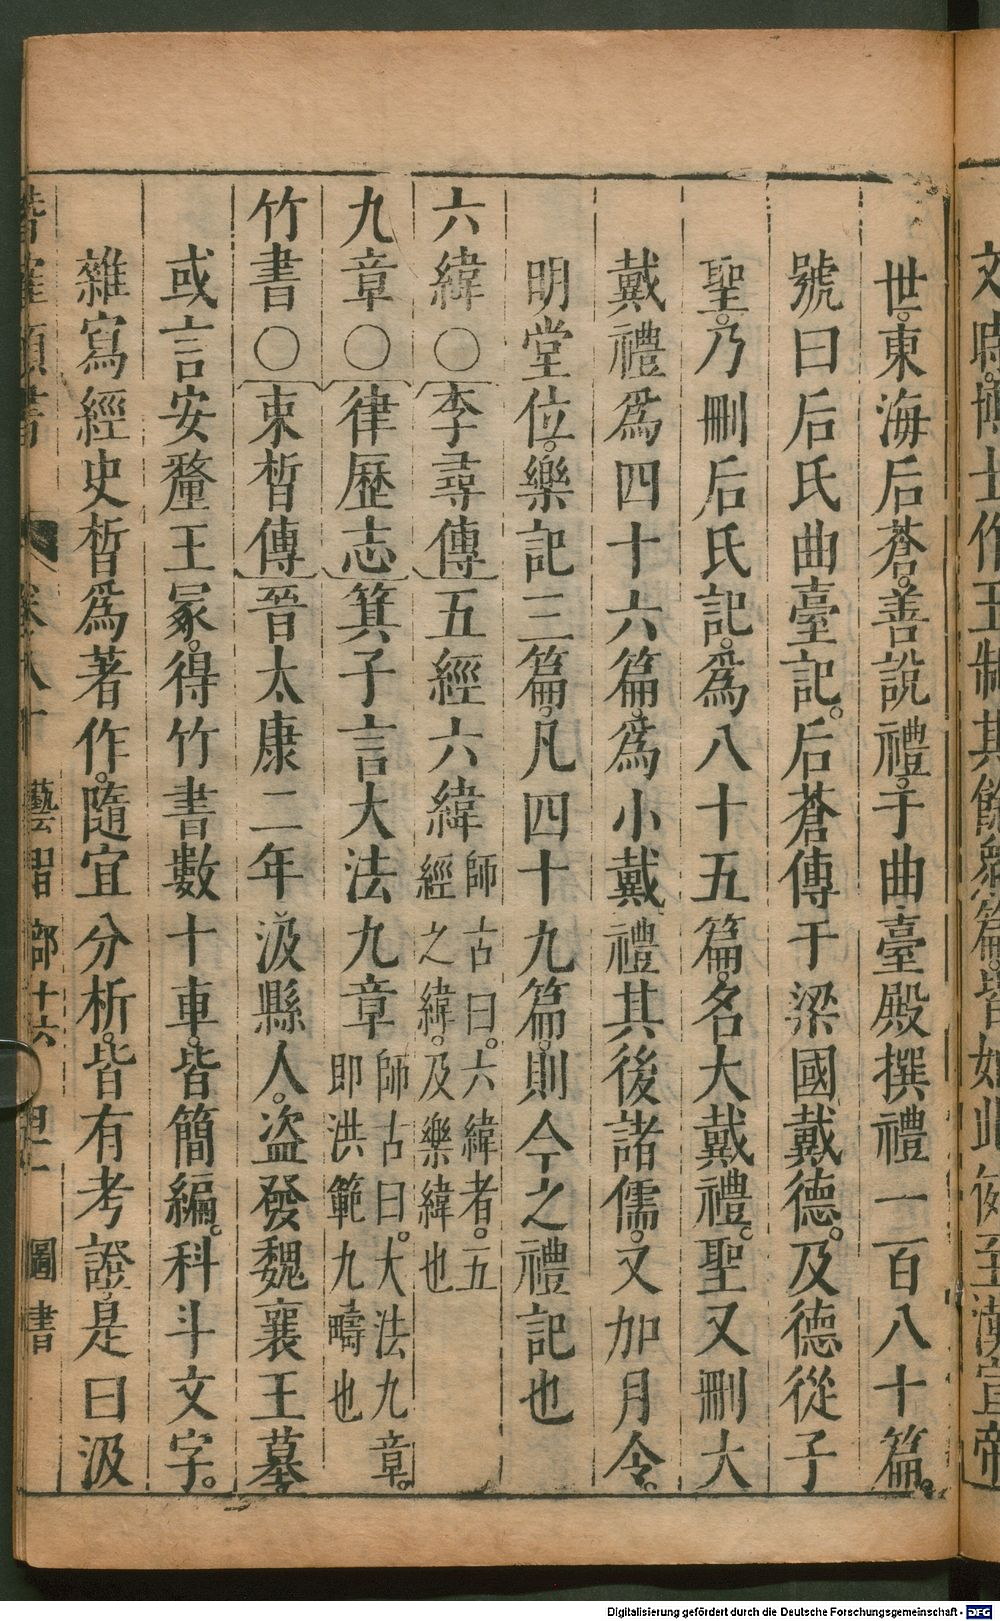 世。東海后蒼。善說禮。于曲臺殿撰禮一百八十篇。
號曰后氏曲臺記。后蒼傳于梁國戴德。及德從子
聖。乃刪后氏記。爲八十五篇。名大戴禮。聖又刪大
戴禮爲四十六篇。爲小戴禮其後諸儒。又加月令。
明堂位。樂記三篇。凡四十九篇。則今之禮記也
六緯○李尋傳五經六緯師古曰。六緯者。五經之緯。及樂緯也
九章○律歷志箕子言大法九章師古曰。大法九章。即洪範九疇也
竹書○束晳傳晉太康二年汲縣人。盜發魏襄王墓。
或言安釐王冢。得竹書數十車。皆簡編。科斗文字。
雜寫經史晳爲著作。隨宜分析。皆有考證。是曰汲
藝習部十六 圖書
Digitalisierung gefördert durch die Deutsche Forschungsgemeinschaft - DFG